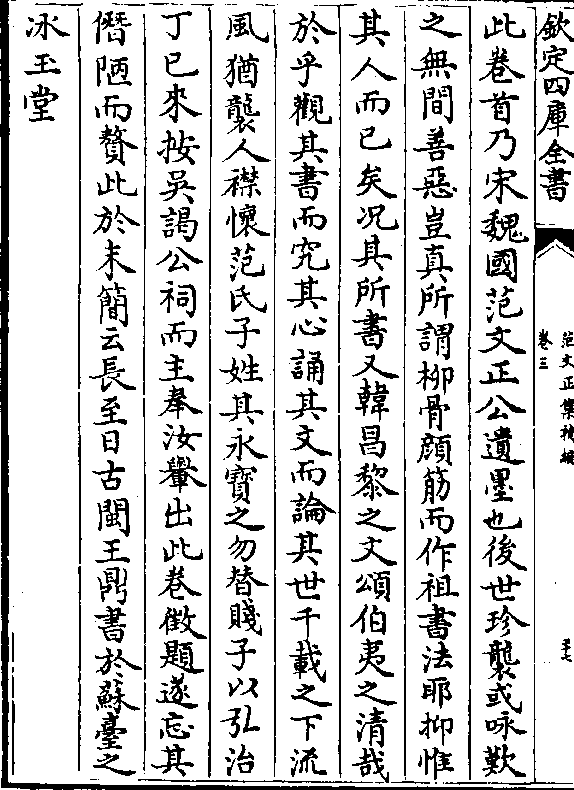 欽定四庫全書
范文正集補編
卷三
三十七
此卷首乃宋魏國范文正公遺墨也後世珍襲或咏歎
之無間善惡豈真所謂柳骨顔筋而作祖書法耶抑惟
其人而已矣况其所書又韓昌黎之文頌伯夷之清哉
於乎觀其書而究其心誦其文而論其世千載之下流
風猶襲人襟懷范氏子姓其永寶之勿替賤子以弘治
丁巳來按吳謁公祠而主奉汝轝出此卷徴題遂忘其
僭陋而贅此於末簡云長至日古閩王鼎書於蘇臺之
冰玉堂